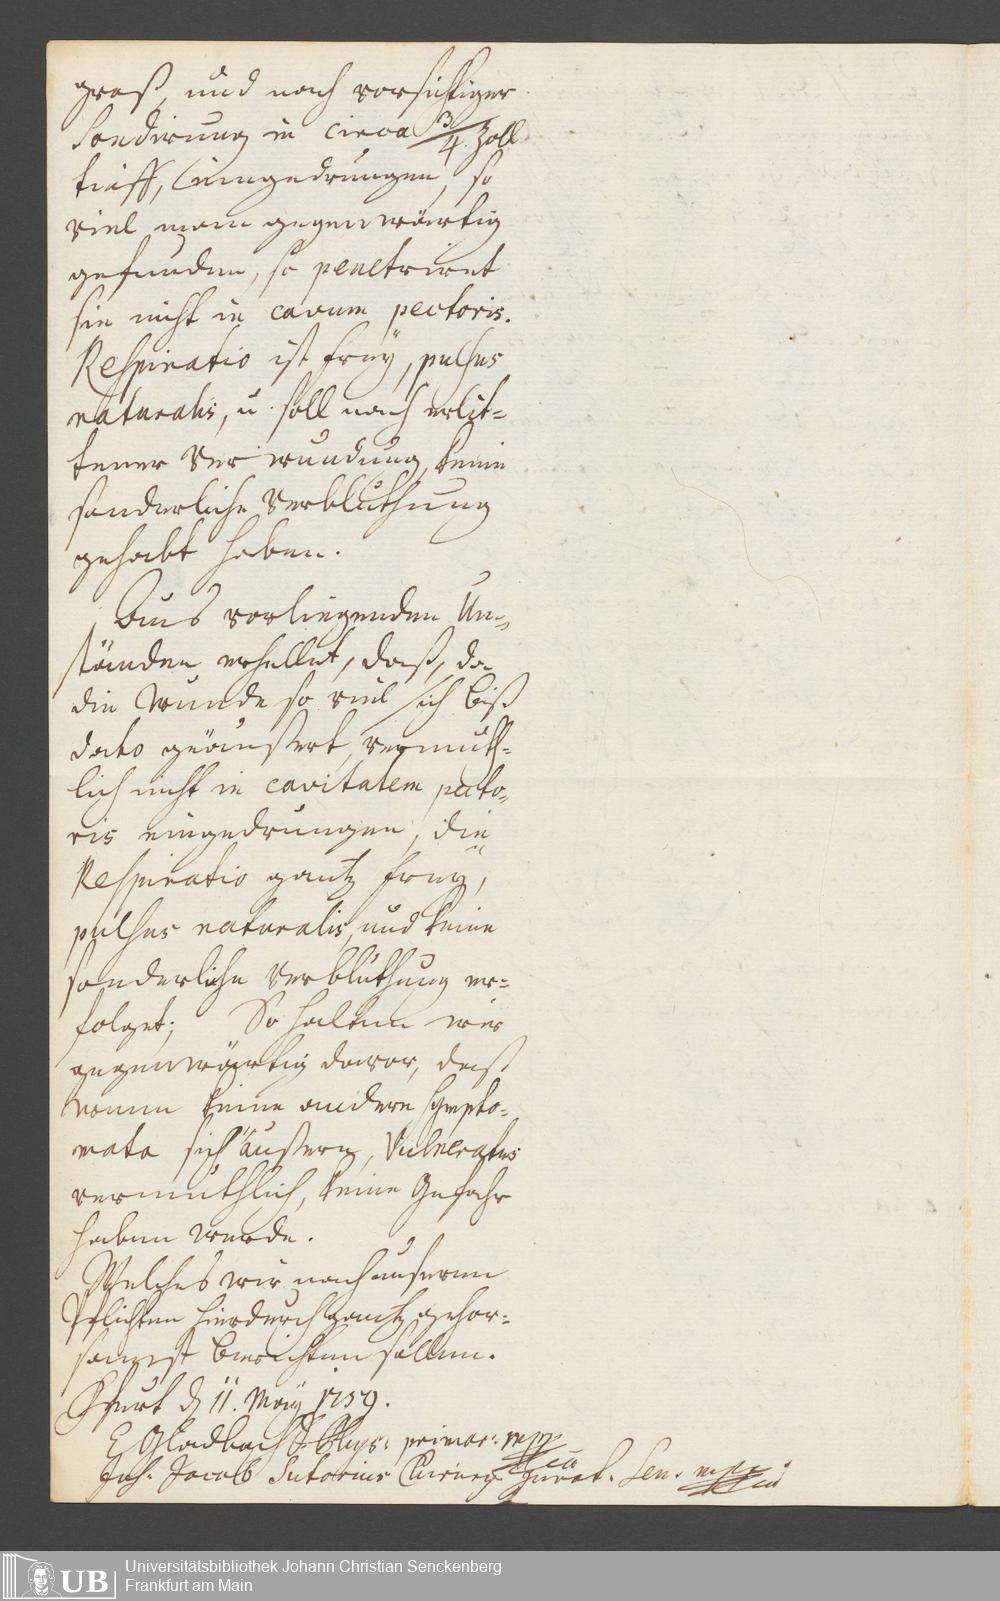 groß, und nach vorsichtiger
Sondirung in circa 3/4. Zoll
tieff, eingedrungen, so
viel man gegenwärtig
gefunden, so penetriret
sie nicht in cavum pectoris.
Respiratio ist frey, pulsus
naturalis, u. soll nach erlit=
tener Verwundung, keine
sonderliche Verbluthung
gehabt haben.
Aus vorliegenden Um=
ständen erhellet, daß, da
die Wunde so viel sich biß
dato geäussert, vermuth=
lich nicht in cavitatem pecto=
ris eingedrungen, die
Respiratio gantz frey,
pulsus naturalis, und keine
sonderliche Verbluthung er=
folget; So halten wir
gegenwärtig davor, daß
wann keine andere Sympto=
mata sich äussern, Vulneratus
vermuthlich, keine Gefahr
haben werde.
Welches wir nach unseren
Pflichten hierdurch gantz gehor=
samst berichten sollen.
Ffurt d 11. May 1759.
E Gladbach D. Phys: primar: mpp
Joh. Jacob Sutorius Chirurg. Jurat. Sen. mpp
UB Universitätsbibliothek Johann Christian Senckenberg
Frankfurt am Main